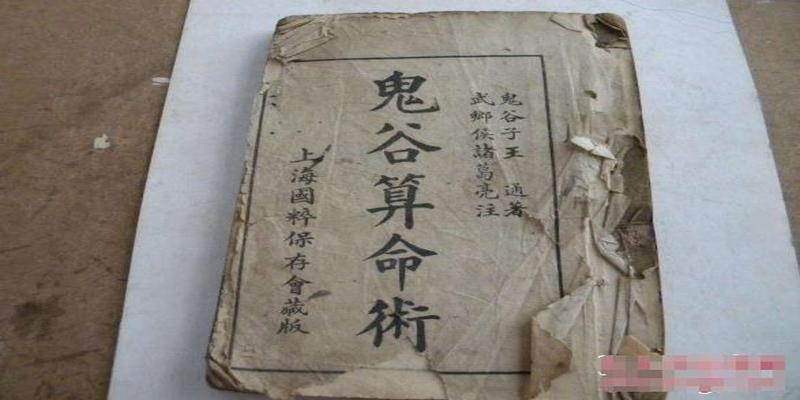 鬼谷子王通著
武鄉侯諸葛亮注
鬼谷算命術
上海國粹保存會藏版